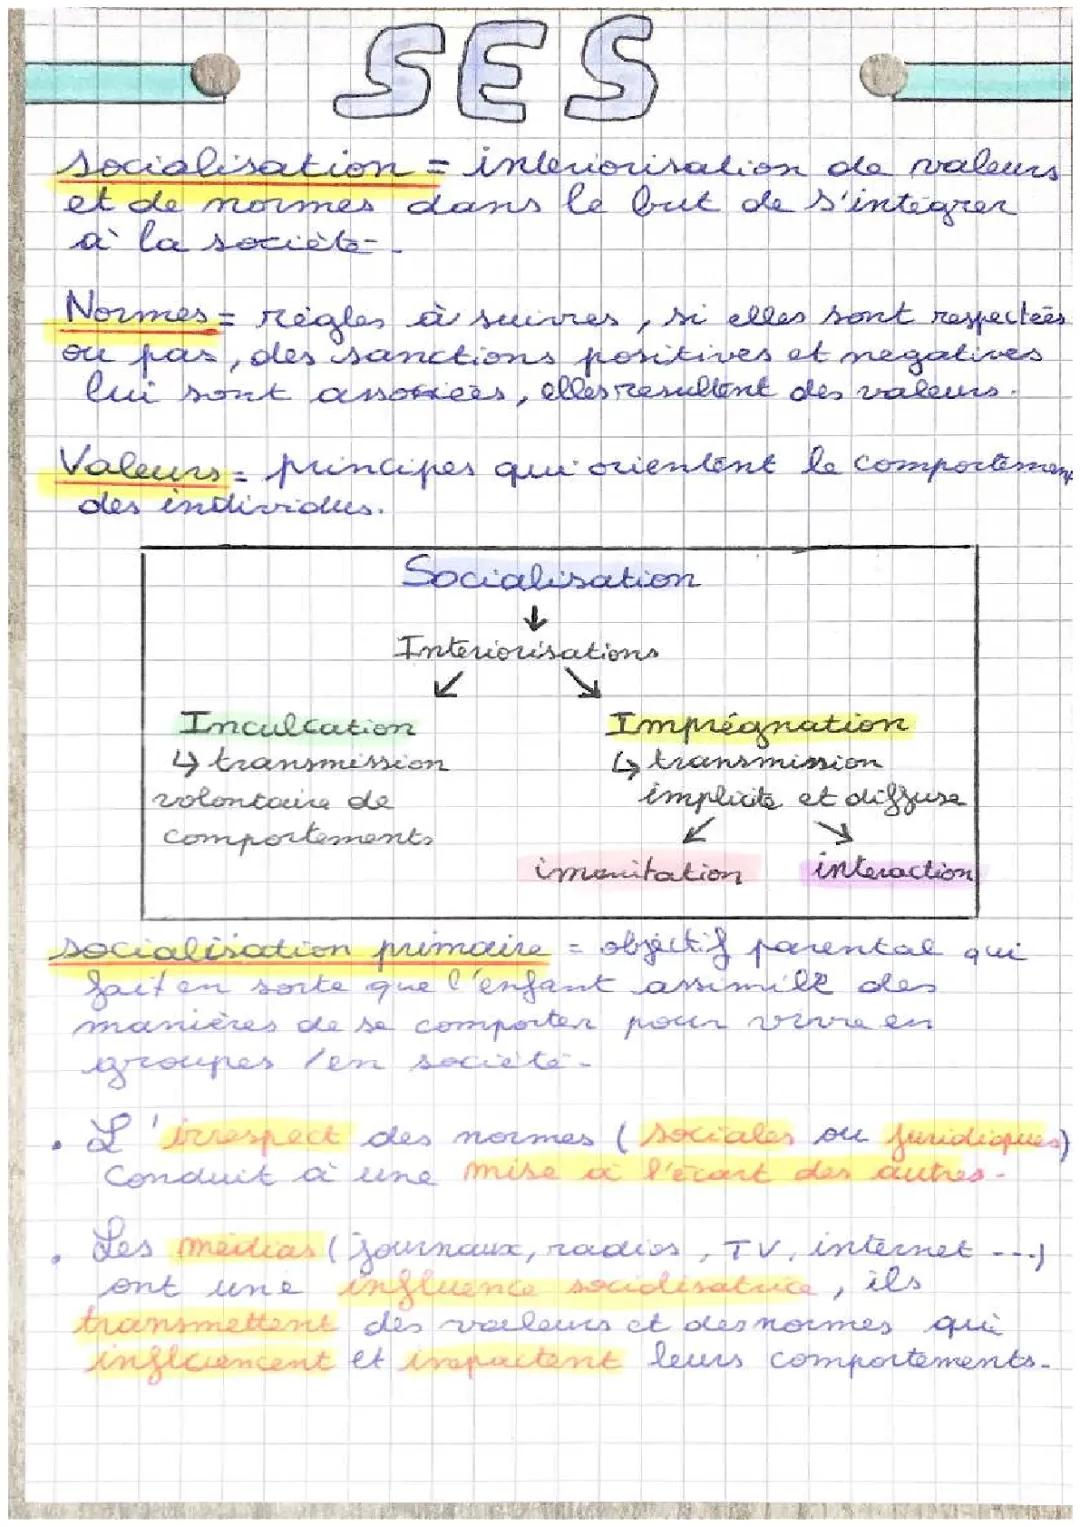 SES
socialisation = interiorisation de valeurs
et de normes dans le but de s'intégrer
à la société.
Normes = règles à suivres, si elles sont respectées
ou pas, des sanctions positives et negatives
lui sont associées, elles resultent des valeurs.
Valeurs = principes qui orientent le comportement
des individus.
Socialisation
↓
Interiorisations
↙ ↘
Inculcation Imprégnation
↳ transmission ↳ transmission
volontaire de implicite et diffuse
comportements ↙ ↘
imanitation interaction
socialisation primaire = objectif parental qui
fait en sorte que l'enfant assimile des
manières de se comporter pour vivre en
groupes / en société.
• L'irrespect des normes (sociales ou juridiques)
conduit à une mise à l'écart des autres.
• Les médias (journaux, radios, TV, internet ...)
ont une influence socialisatrice, ils
transmettent des valeurs et des normes qui
influencent et impactent leurs comportements.